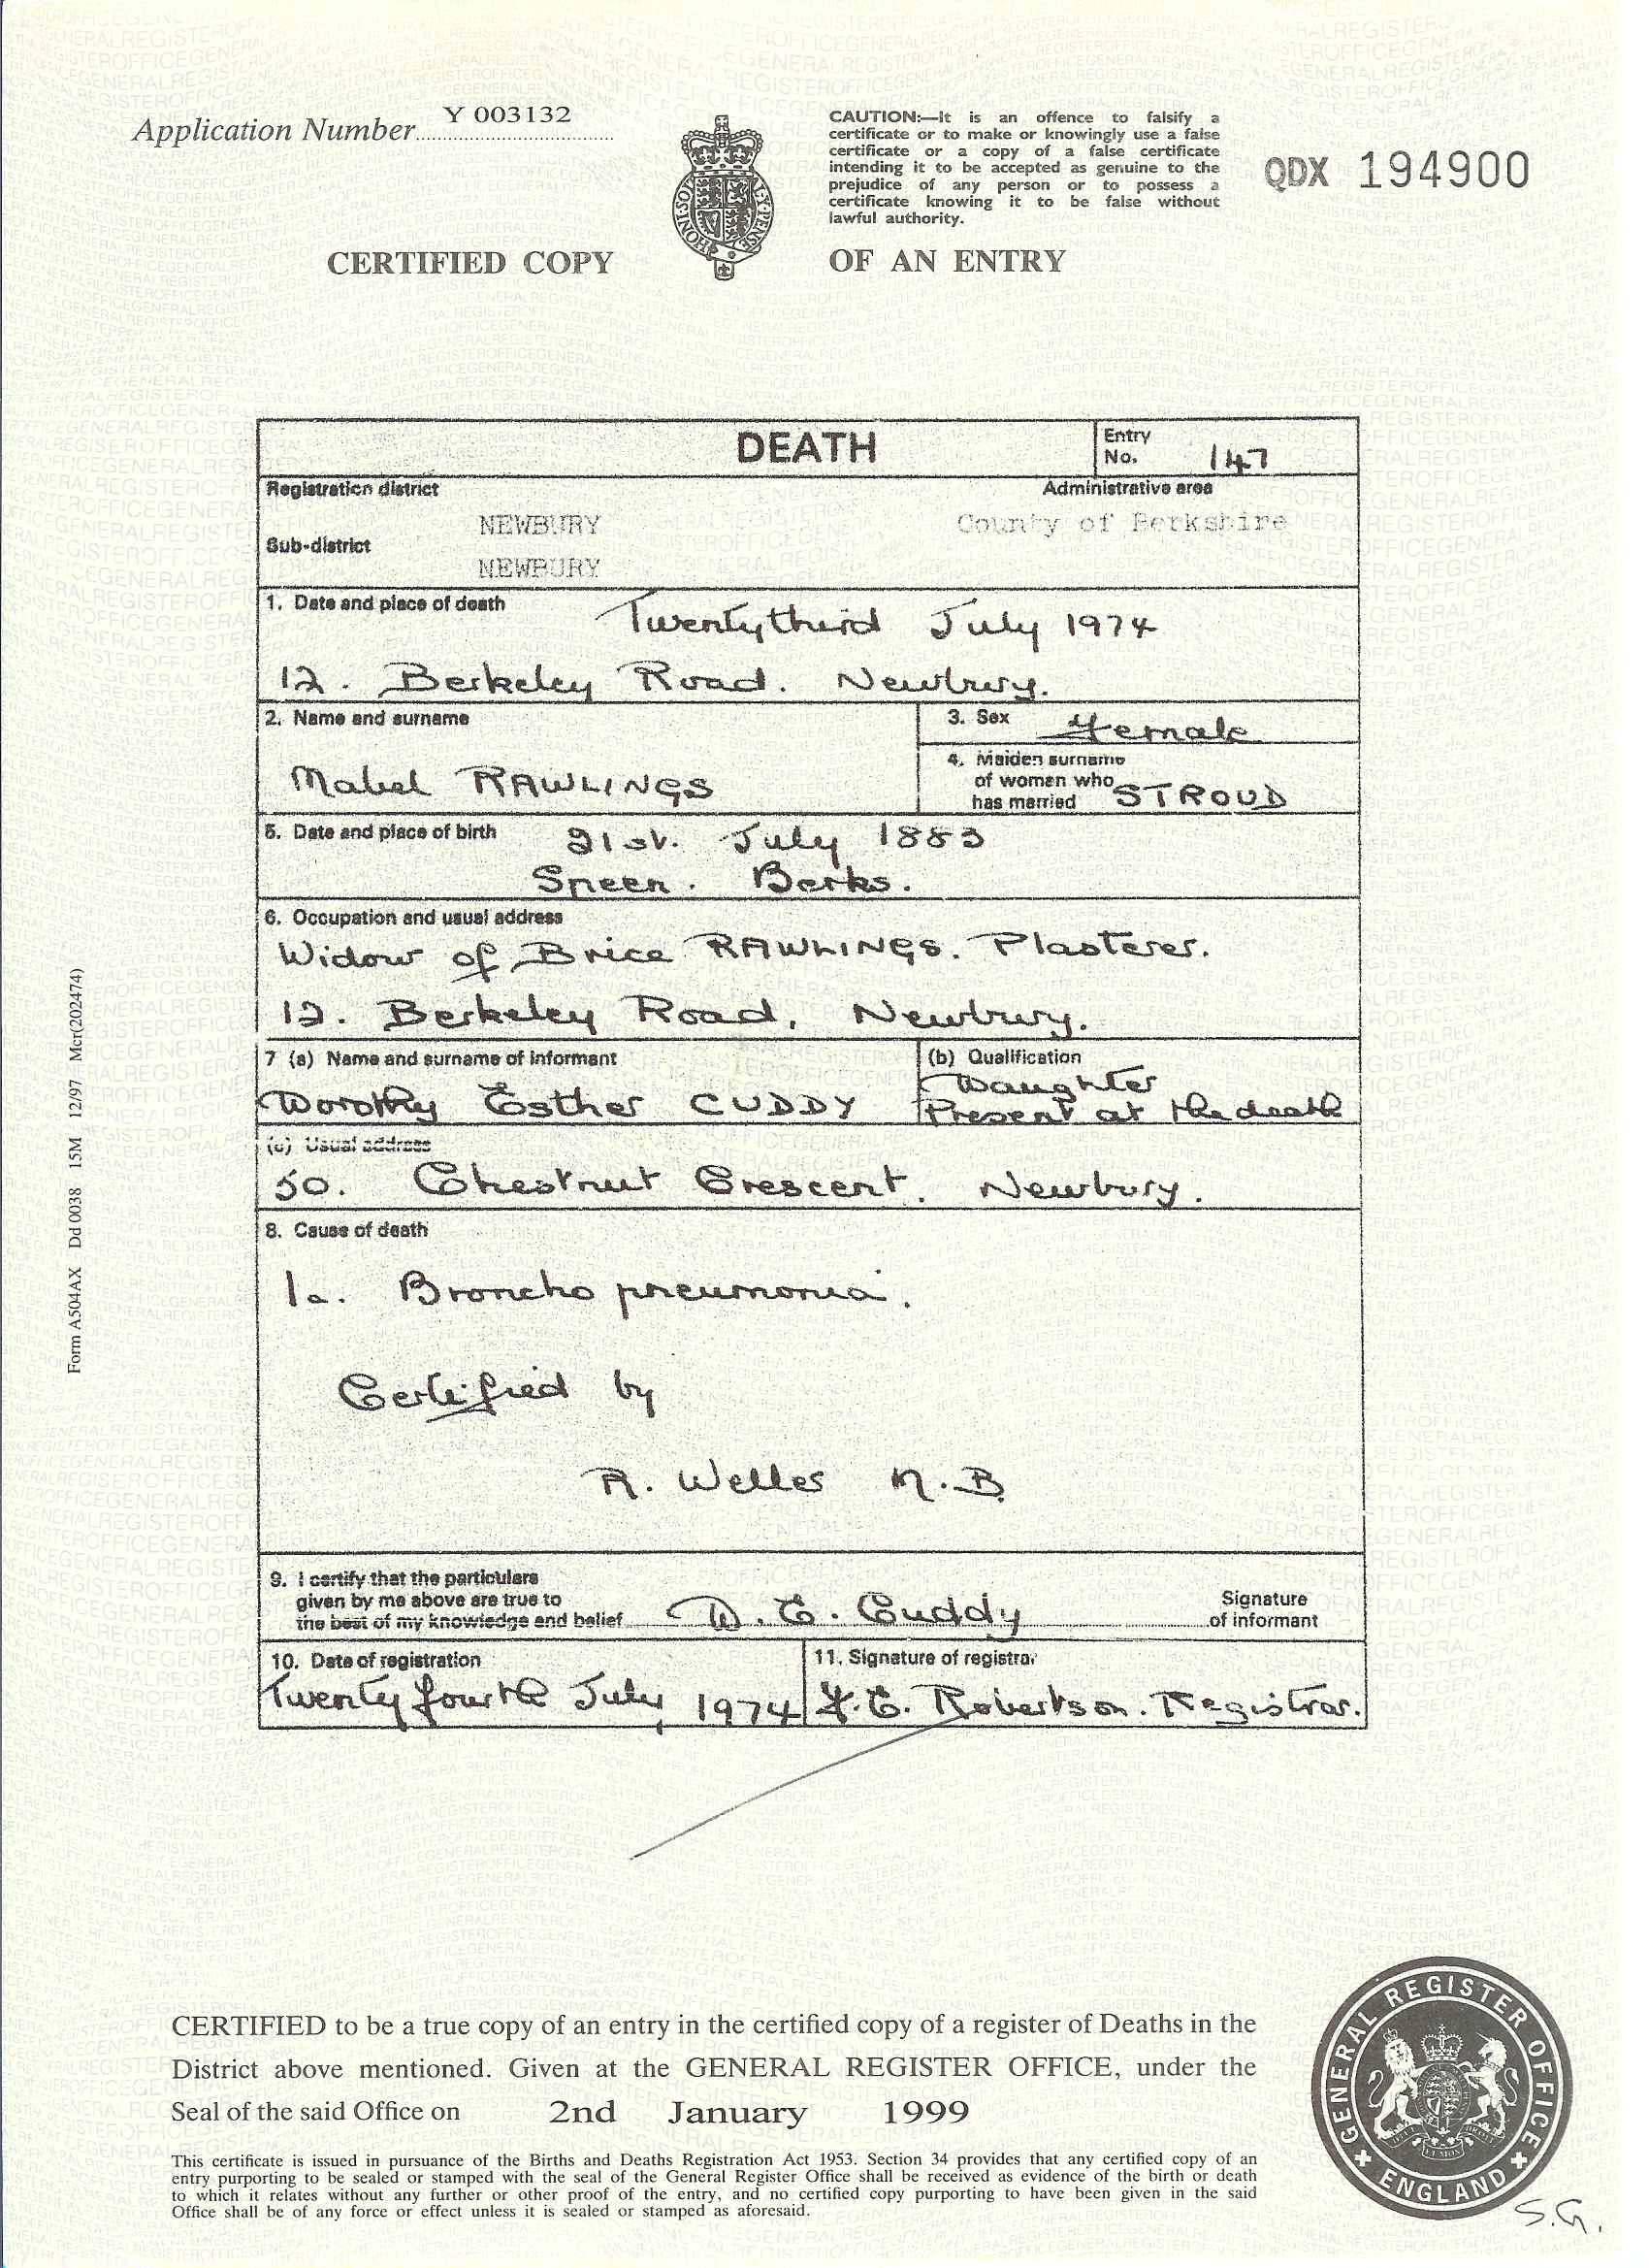 Application Number Y 003132
CAUTION:—It is an offence to falsify a
certificate or to make or knowingly use a false
certificate or a copy of a false certificate
intending it to be accepted as genuine to the
prejudice of any person or to possess a
certificate knowing it to be false without
lawful authority.
QDX 194900
CERTIFIED COPY OF AN ENTRY
DEATH
Entry No. 147
Registration district
Administrative area
NEWBURY
County of Berkshire
Sub-district
NEWBURY
1. Date and place of death
Twenty third July 1974
12. Berkeley Road. Newbury.
2. Name and surname
Mabel RAWLINGS
3. Sex Female
4. Maiden surname
of woman who
has married STROUD
5. Date and place of birth
21st. July 1883
Speen. Berks.
6. Occupation and usual address
Widow of Brice RAWLINGS. Plasterer.
12. Berkeley Road, Newbury.
7 (a) Name and surname of informant
Dorothy Esther CUDDY
(b) Qualification
Daughter
Present at the death
(c) Usual address
50. Chestnut Crescent. Newbury.
8. Cause of death
1a. Broncho pneumonia.
Certified by
R. Welles M.B.
9. I certify that the particulars
given by me above are true to
the best of my knowledge and belief D. E. Cuddy Signature
of informant
10. Date of registration
Twenty fourth July 1974
11. Signature of registrar
E. Robertson. Registrar.
Form A504AX Dd 0038 15M 12/97 Mcr(202474)
CERTIFIED to be a true copy of an entry in the certified copy of a register of Deaths in the
District above mentioned. Given at the GENERAL REGISTER OFFICE, under the
Seal of the said Office on 2nd January 1999
This certificate is issued in pursuance of the Births and Deaths Registration Act 1953. Section 34 provides that any certified copy of an
entry purporting to be sealed or stamped with the seal of the General Register Office shall be received as evidence of the birth or death
to which it relates without any further or other proof of the entry, and no certified copy purporting to have been given in the said
Office shall be of any force or effect unless it is sealed or stamped as aforesaid.
GENERAL REGISTER OFFICE
ENGLAND
S.G.